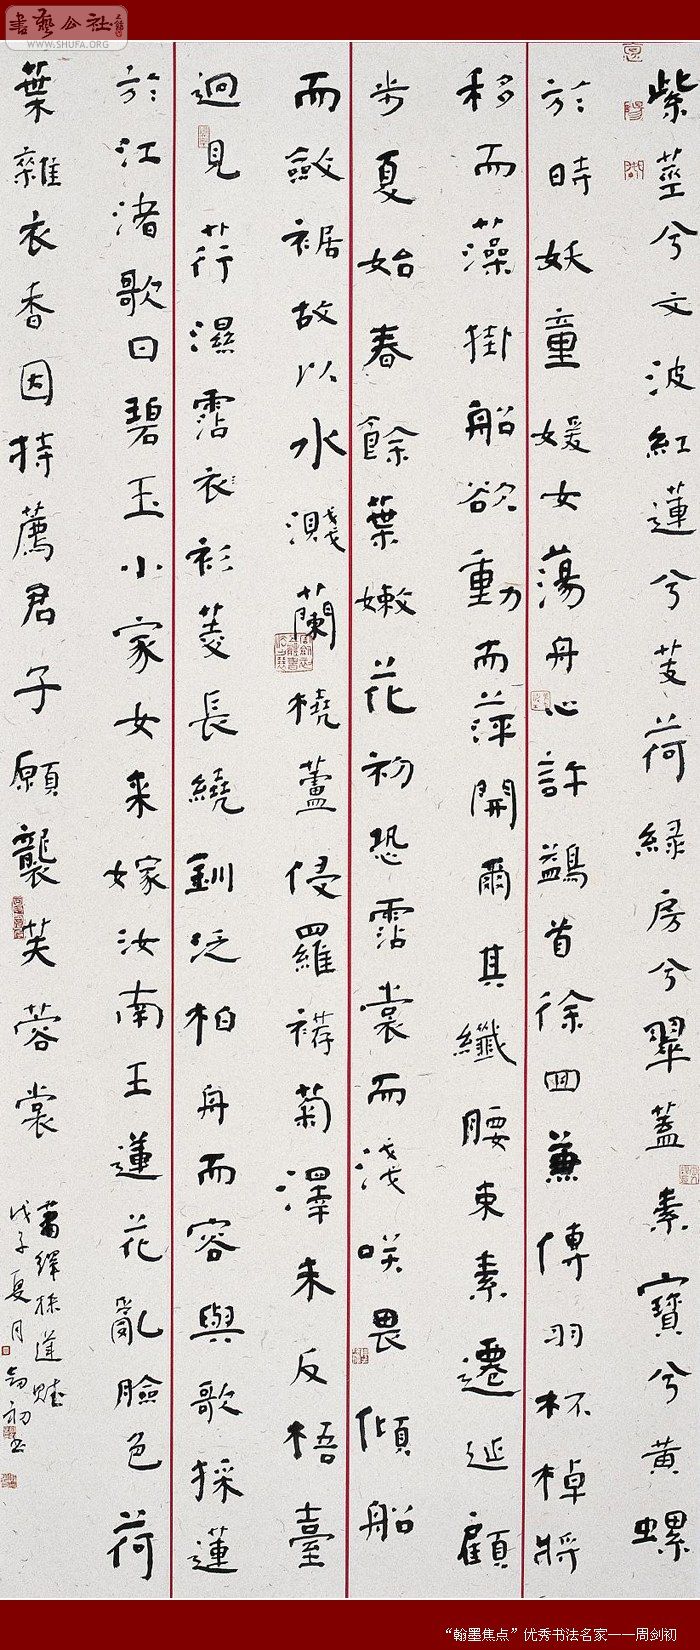 書藝公社
WWW.SHUFA.ORG
紫莖兮文波紅蓮兮芰荷綠房兮翠蓋素實兮黃螺
於時妖童媛女蕩舟心許鷁首徐回兼傳羽杯棹將
移而藻掛船欲動而萍開爾其纖腰束素遷延顧
步夏始春餘葉嫩花初恐霑裳而淺咲畏傾船
而斂裾故以水濺蘭橈蘆侵羅䙓菊澤未反梧臺
迥見荇濕霑衣衫菱長繞釧泛柏舟而容與歌採蓮
於江渚歌曰碧玉小家女来嫁汝南王蓮花亂臉色荷
葉雜衣香因持薦君子願襲芙蓉裳
蕭繹採蓮賦
戊子夏月劍初書
“翰墨焦点”优秀书法名家——周剑初